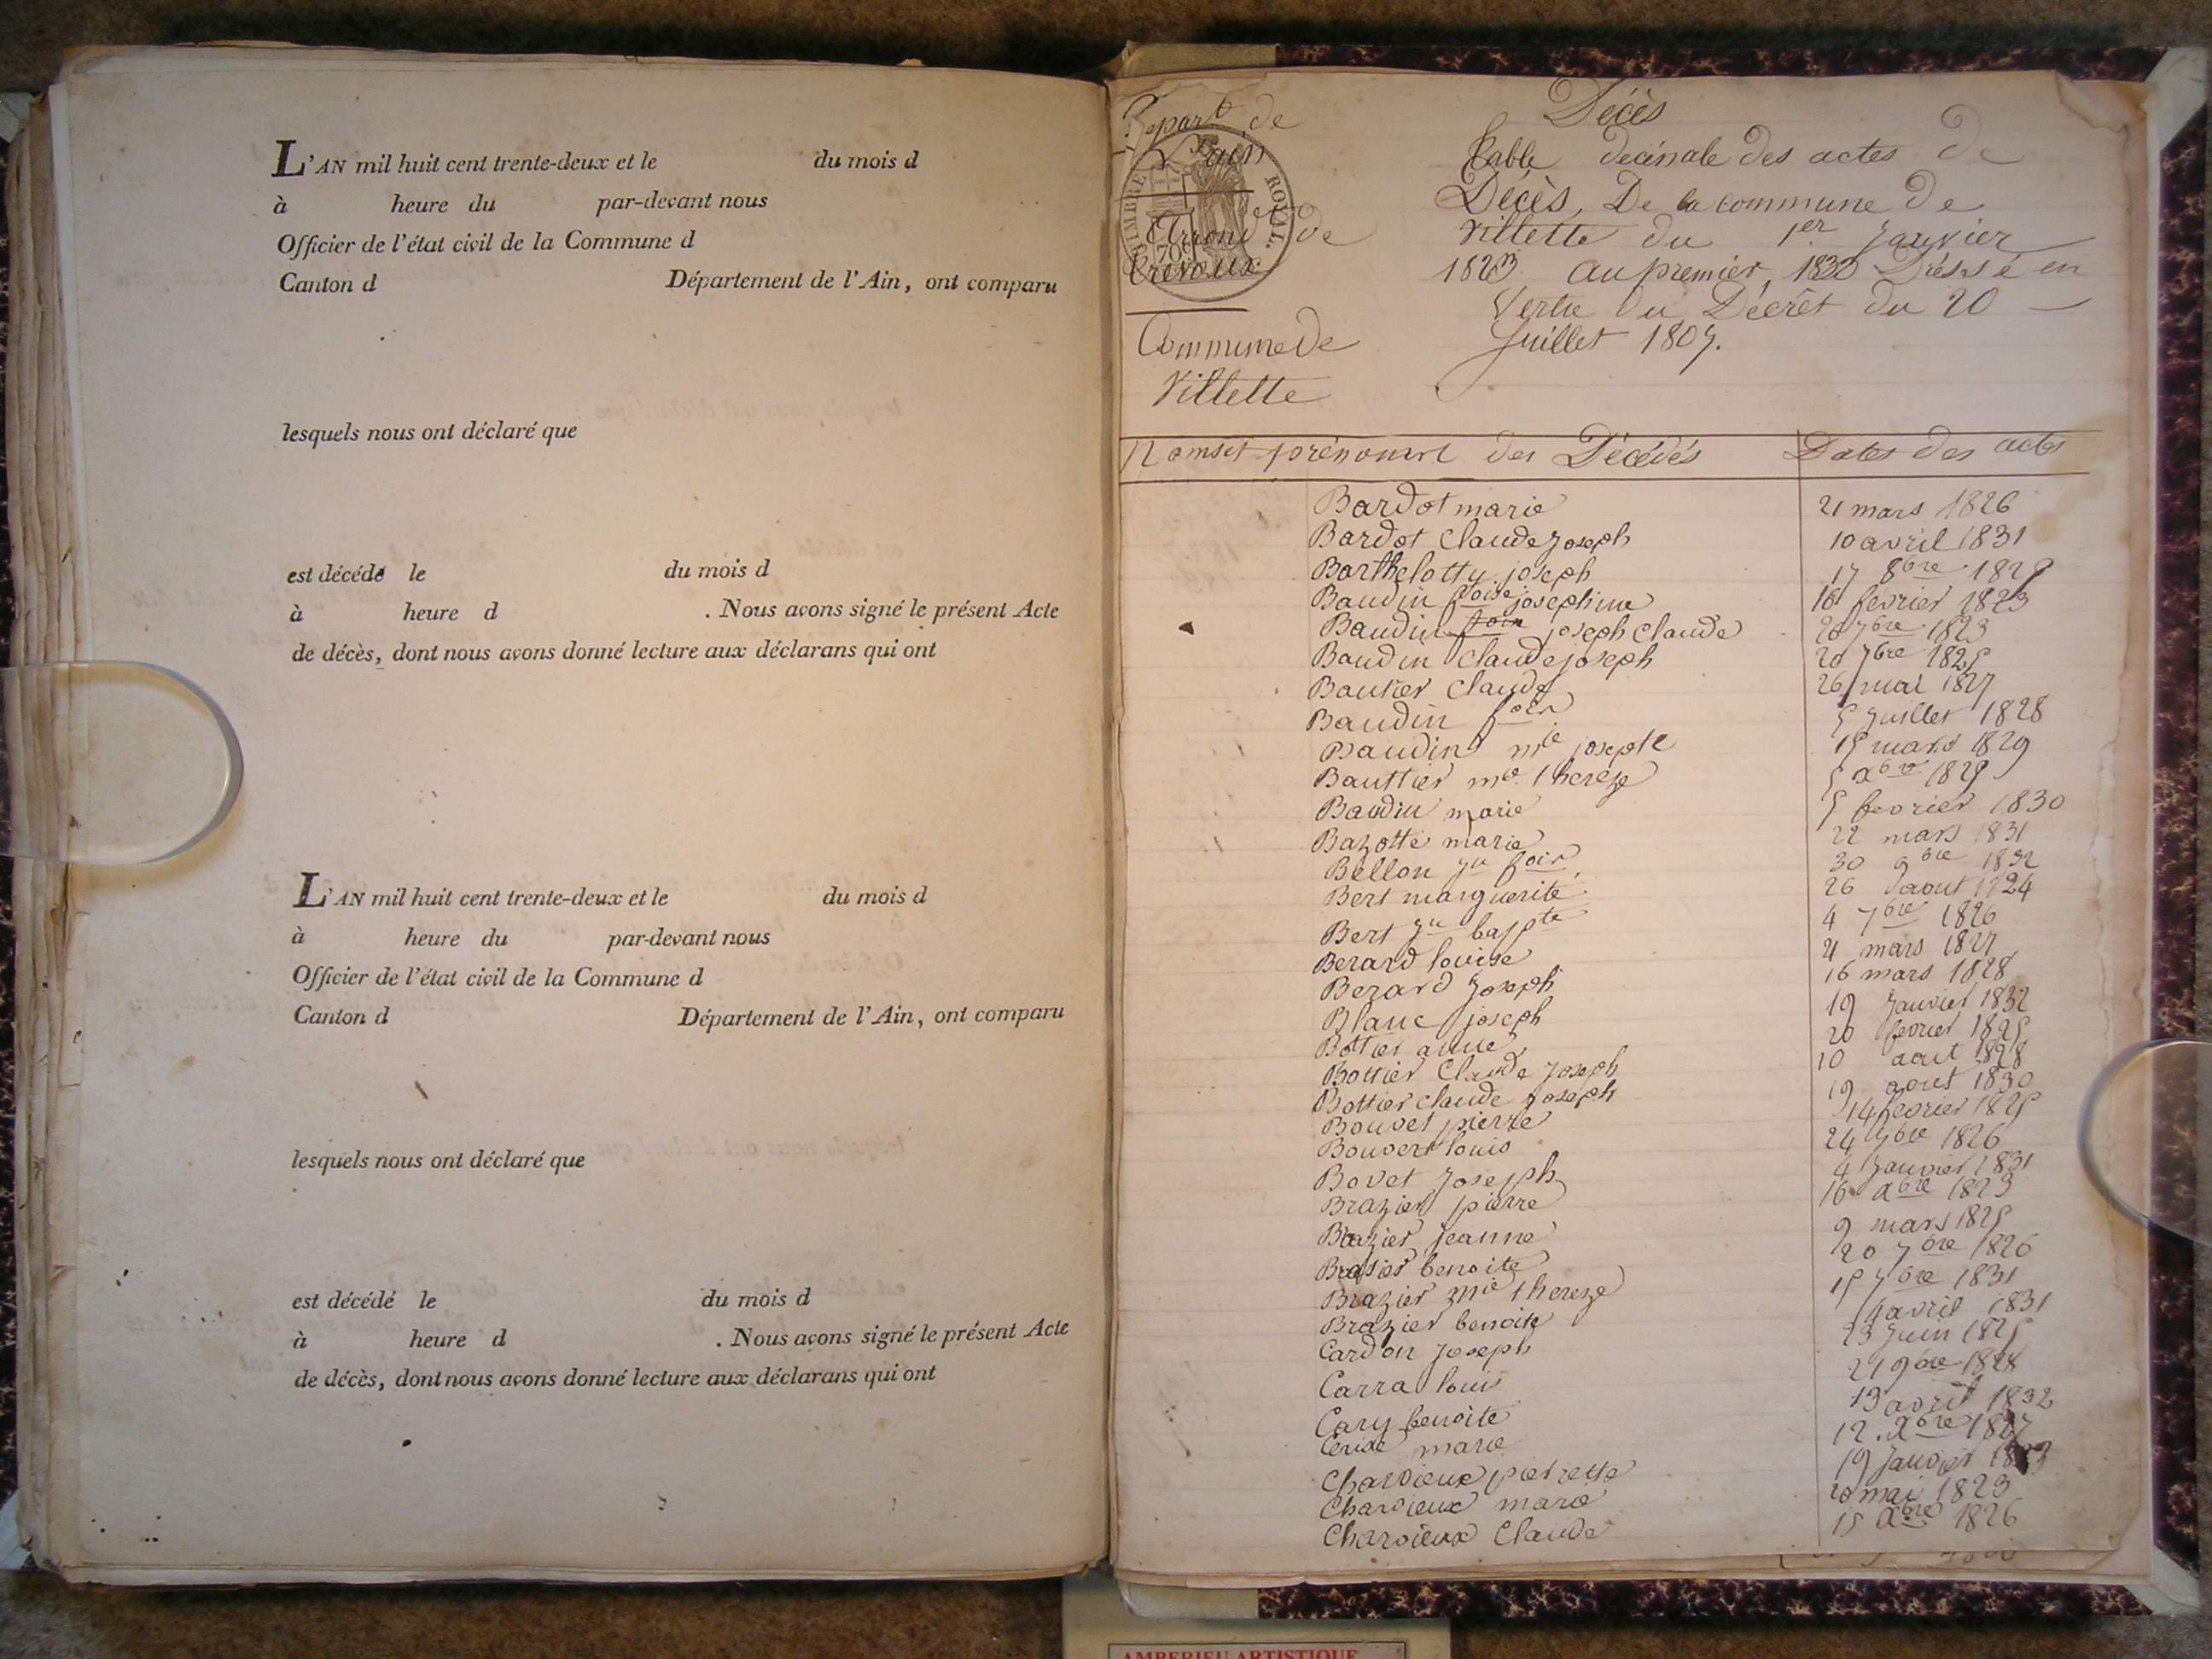 L'AN mil huit cent trente-deux et le du mois d
à heure du par-devant nous
Officier de l'état civil de la Commune d
Canton d Département de l'Ain, ont comparu
lesquels nous ont déclaré que
est décédé le du mois d
à heure d . Nous avons signé le présent Acte
de décès, dont nous avons donné lecture aux déclarans qui ont
L'AN mil huit cent trente-deux et le du mois d
à heure du par-devant nous
Officier de l'état civil de la Commune d
Canton d Département de l'Ain, ont comparu
lesquels nous ont déclaré que
est décédé le du mois d
à heure d . Nous avons signé le présent Acte
de décès, dont nous avons donné lecture aux déclarans qui ont
Depart de
L'ain
TIMBRE ROYAL.
70
de
Trevoux
Commune de
Villette
Décès
Table decénale des actes de
Décès, De la commune de
Villette du 1er Janvier
1823 au premier, 1833 Dréssé en
Vertu du Décrêt du 20
Juillet 1807.
Noms et prénoms des Décédés Dates des actes
Bardot marie 21 mars 1826
Bardot Claude Joseph 10 avril 1831
Barthelotty joseph 17 8bre 1829
Baudin foise joséphine 16 fevrier 1823
Baudin foix joseph Claude 20 7bre 1823
Baudin Claude joseph 20 7bre 1825
Bautier Claude 26 mai 1827
Baudin foix 5 Juillet 1828
Baudin mie josepte 15 mars 1829
Bauttier me thereze 5 xbre 1829
Baudin marie 5 fevrier 1830
Bazotte marie 22 mars 1831
Bellon Jn foix 30 9bre 1832
Bert marguerite 26 aout 1824
Bert Jn bapte 4 7bre 1826
Berard louise 4 mars 1827
Berard Joseph 16 mars 1828
Blanc joseph 19 Janvier 1832
Bottier anne 20 fevrier 1825
Bottier Claude Joseph 10 aout 1828
Bottier claude Joseph 19 aout 1830
Bouvet pierre 14 fevrier 1825
Bouvert louis 24 7bre 1826
Bovet Joseph 4 Janvier 1831
Brazier pierre 16 xbre 1823
Brazier jeanne 9 mars 1825
Brasier benoite 20 7bre 1826
Brazier mie thereze 15 7bre 1831
Brazier benoite 4 avril 1831
Cardon Joseph 23 Juin 1825
Carra louis 27 9bre 1828
Cary benoite 13 avril 1832
marie 12 xbre 1827
Charvieux pierrette 19 Janvier
Charvieux marie 20 mai 1823
Charvieux Claude 15 xbre 1826
AMBERIEU ARTISTIQUE